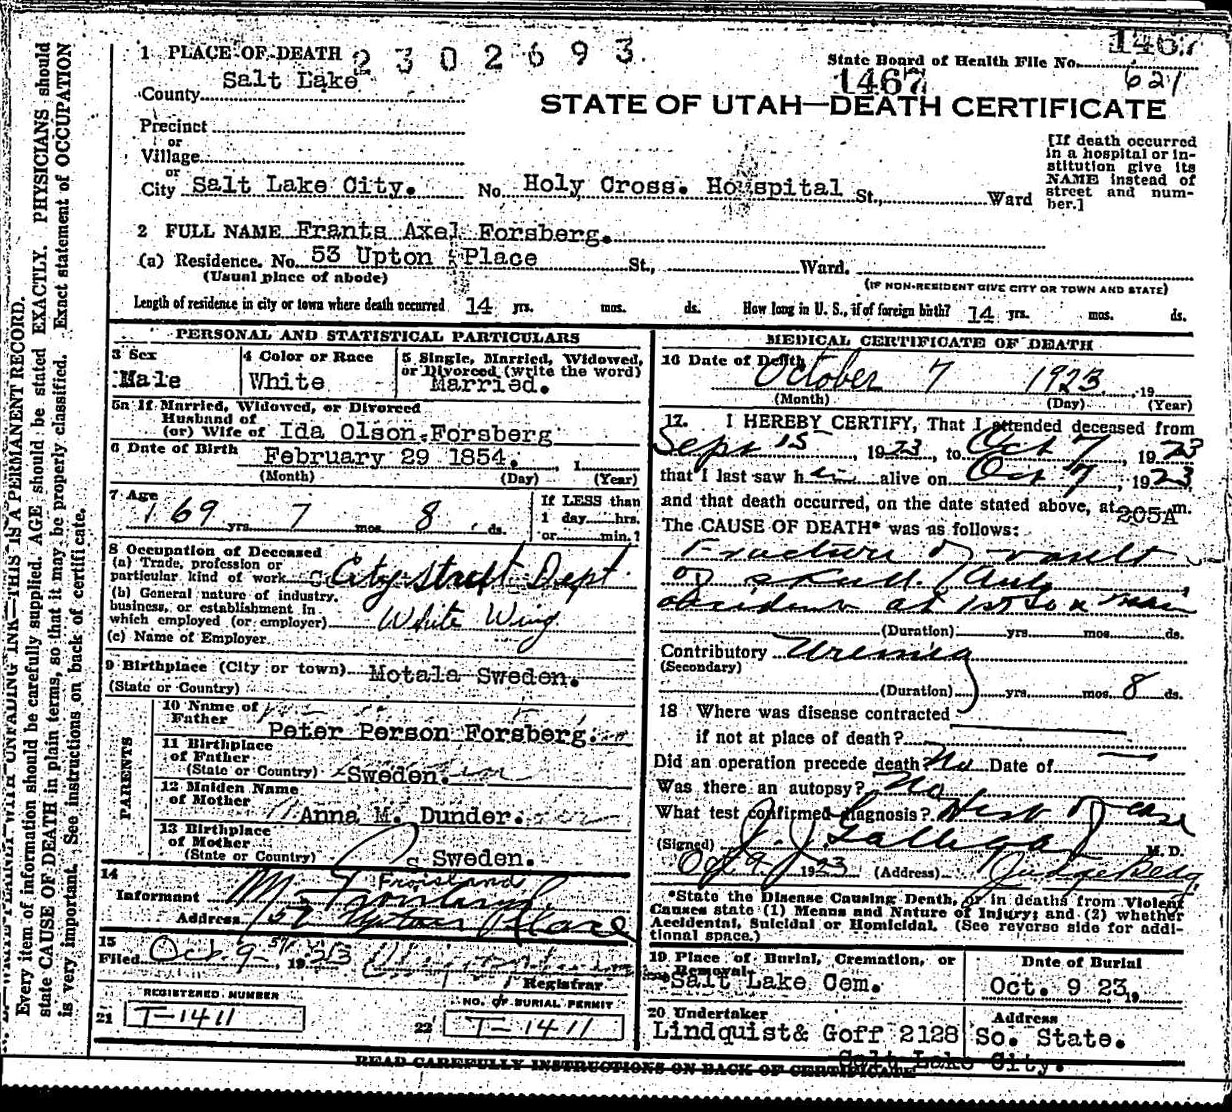 1467
1 PLACE OF DEATH 2302693.
State Board of Health File No.
621
County Salt Lake
1467
STATE OF UTAH—DEATH CERTIFICATE
Precinct
or
Village
or
City Salt Lake City. No. Holy Cross. Hospital St., Ward
[If death occurred in a hospital or in-
stitution give its
NAME instead of
street and num-
ber.]
2 FULL NAME Frants Axel Forsberg.
(a) Residence. No. 53 Upton Place St., Ward.
(Usual place of abode)
(IF NON-RESIDENT GIVE CITY OR TOWN AND STATE)
Length of residence in city or town where death occurred 14 yrs. mos. ds. How long in U. S., if of foreign birth? 14 yrs. mos. ds.
PERSONAL AND STATISTICAL PARTICULARS
3 Sex
Male
4 Color or Race
White
5 Single, Married, Widowed,
or Divorced (write the word)
Married.
5a If Married, Widowed, or Divorced
Husband of
(or) Wife of Ida Olson Forsberg
6 Date of Birth February 29 1854. , 1
(Month) (Day) (Year)
7 Age
69 yrs. 7 mos. 8 ds.
If LESS than
1 day hrs.
or min.?
8 Occupation of Deceased
(a) Trade, profession or
particular kind of work City Street Dept.
(b) General nature of industry,
business, or establishment in
which employed (or employer) White Wing
(c) Name of Employer.
9 Birthplace (City or town) Motala Sweden.
(State or Country)
PARENTS
10 Name of
Father Peter Person Forsberg.
11 Birthplace
of Father
(State or Country) Sweden.
12 Maiden Name
of Mother Anna M. Dunder.
13 Birthplace
of Mother
(State or Country) Sweden.
14
Froisland
Informant
Address 52 Upton Place
15
Filed Oct. 9- 1923
Registrar
REGISTERED NUMBER
21 T-1411
NO. OF BURIAL PERMIT
22 T-1411
MEDICAL CERTIFICATE OF DEATH
16 Date of Death
October 7 1923 , 19
(Month) (Day) (Year)
17. I HEREBY CERTIFY, That I attended deceased from
Sept 15, 1923, to Oct 7, 1923
that I last saw him alive on Oct 7, 1923,
and that death occurred, on the date stated above, at 205A m.
The CAUSE OF DEATH* was as follows:
Fracture of vault
of skull. Auto
accident at 1st So & Main
(Duration) yrs. mos. ds.
Contributory Uremia
(Secondary)
(Duration) yrs. mos. 8 ds.
18 Where was disease contracted
if not at place of death?
Did an operation precede death? No Date of
Was there an autopsy? No
What test confirmed diagnosis? Hist of case
(Signed) J. J. Galligan M. D.
Oct 9, 1923 (Address) Judge Bldg.
*State the Disease Causing Death, or in deaths from Violent
Causes state (1) Means and Nature of Injury; and (2) whether
Accidental, Suicidal or Homicidal. (See reverse side for addi-
tional space.)
19 Place of Burial, Cremation, or
Removal
Salt Lake Cem.
Date of Burial
Oct. 9 23, 19
20 Undertaker
Lindquist& Goff 2128
Address
So. State.
Salt Lake City.
READ CAREFULLY INSTRUCTIONS ON BACK OF CERTIFICATE
WRITE PLAINLY WITH UNFADING INK—THIS IS A PERMANENT RECORD.
Every item of information should be carefully supplied. AGE should be stated EXACTLY. PHYSICIANS should
state CAUSE OF DEATH in plain terms, so that it may be properly classified. Exact statement of OCCUPATION
is very important. See instructions on back of certificate.